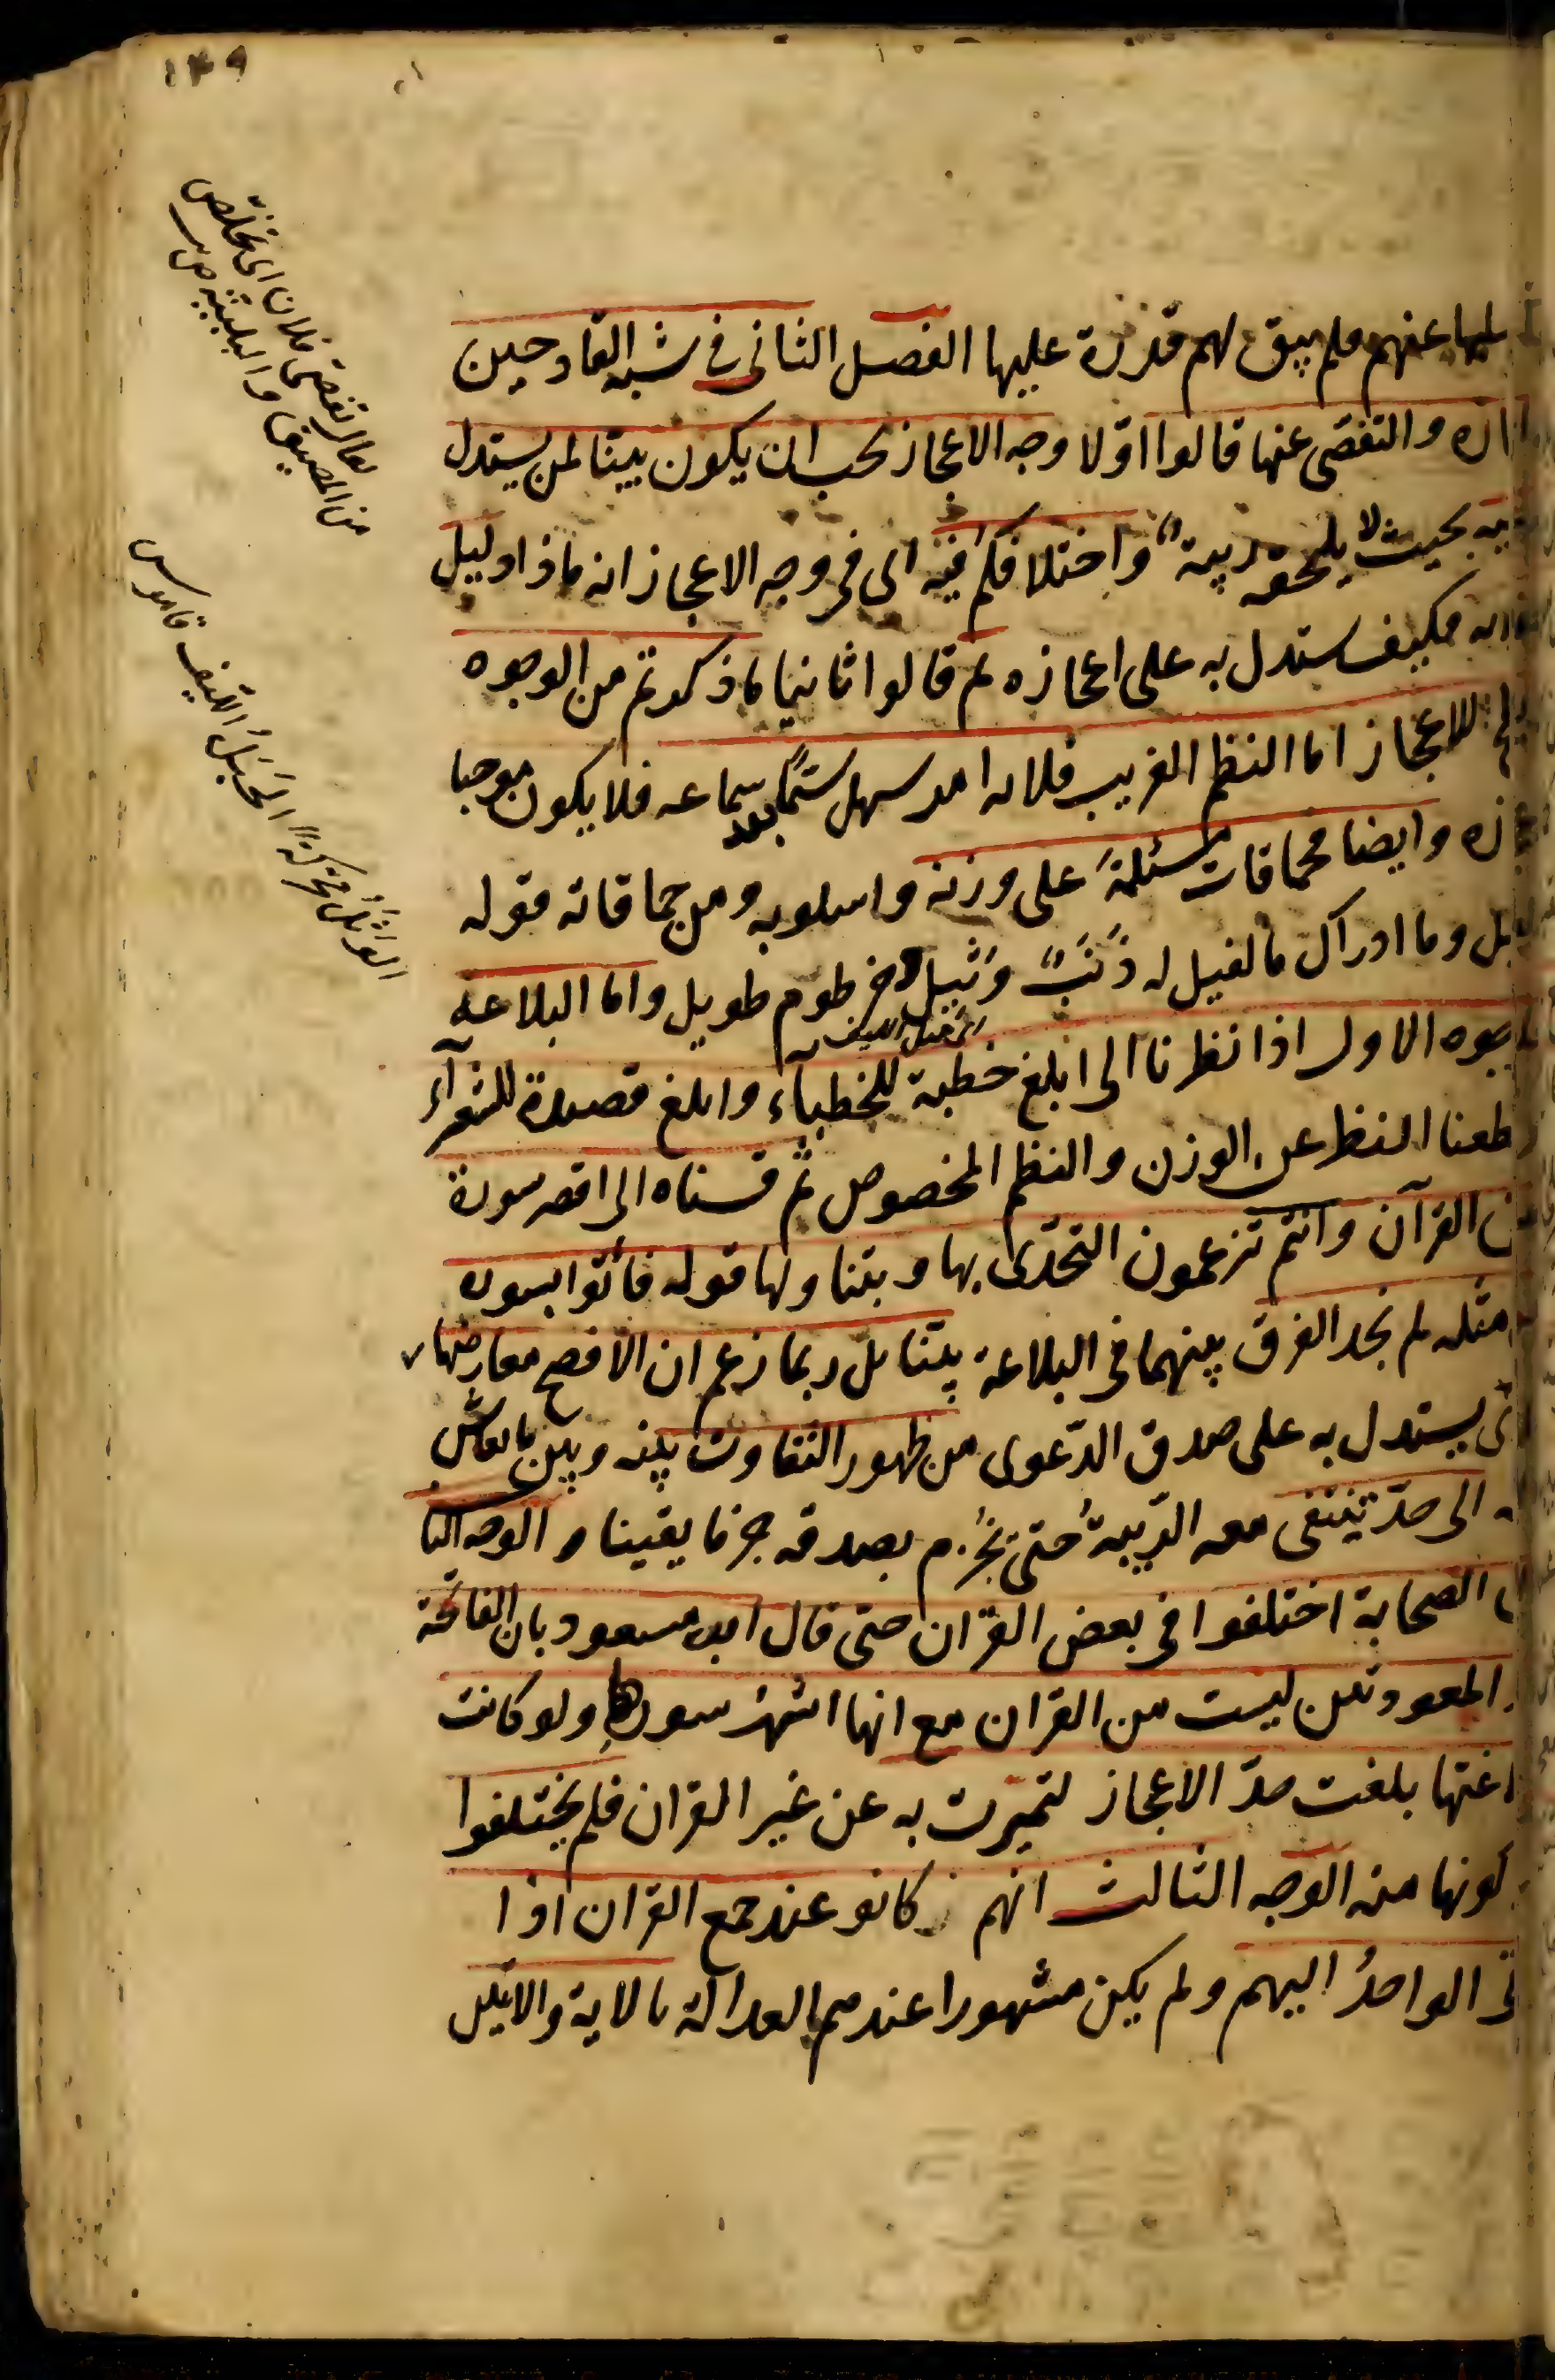 ١٤٩
يقال تفصى فلان اى تخلص
من المضيق والبلية
الوَثَلُ محركةً الحَبْلُ من الليف قاموس
عنهم فلم يبق لهم قدرة عليها الفصل الثانى فى شبه القادحين
والتفصى عنها قالوا اوّلا وجه الاعجاز يجب ان يكون بينا لمن يستدل
به بحيث لا يلحقه ريبة واختلافكم فيه اى فى وجه الاعجاز انه ماذا دليل
فكيف يستدل به على اعجازه ثم قالوا ثانيا ما ذكرتم من الوجوه
للاعجاز اما النظم الغريب فلانه امر سهل سيّما بعد سماعه فلا يكون موجبا
وايضا فحماقات مسيلمة على وزنه واسلوبه ومن حماقاته قوله
وما ادراك ما الفيل له ذَنَبٌ وَثيل وخرطوم طويل واما البلاغة
الاول اذا نظرنا الى ابلغ خطبة للخطبآء وابلغ قصيدة للشعرآء
النظر عن الوزن والنظم المخصوص ثم قسناه الى اقصر سورة
القرآن وانتم تزعمون التحدّى بها ويتناولها قوله فأتوا بسورة
مثله لم نجد الفرق بينهما فى البلاغة بيّنا بل ربما زعم ان الافصح معارضها
يستدل به على صدق الدّعوى من ظهور التفاوت بينه وبين ما يقاس
الى حدّ ينتفى معه الرّيبة حتى يجزم بصدقه جزما يقينا و الوجه الثا
الصحابة اختلفوا فى بعض القرآن حتى قال ابن مسعود بان الفاتحة
المعوذتين ليست من القران مع انها اشهر سورها ولو كانت
بلغت حدّ الاعجاز لتميزت به عن غير القران فلم يختلفوا
كونها منه الوجه الثالث انهم كانوا عند جمع القران اذا
الواحدُ اليهم ولم يكن مشهورا عندهم بالعدالة بالاية والايتين